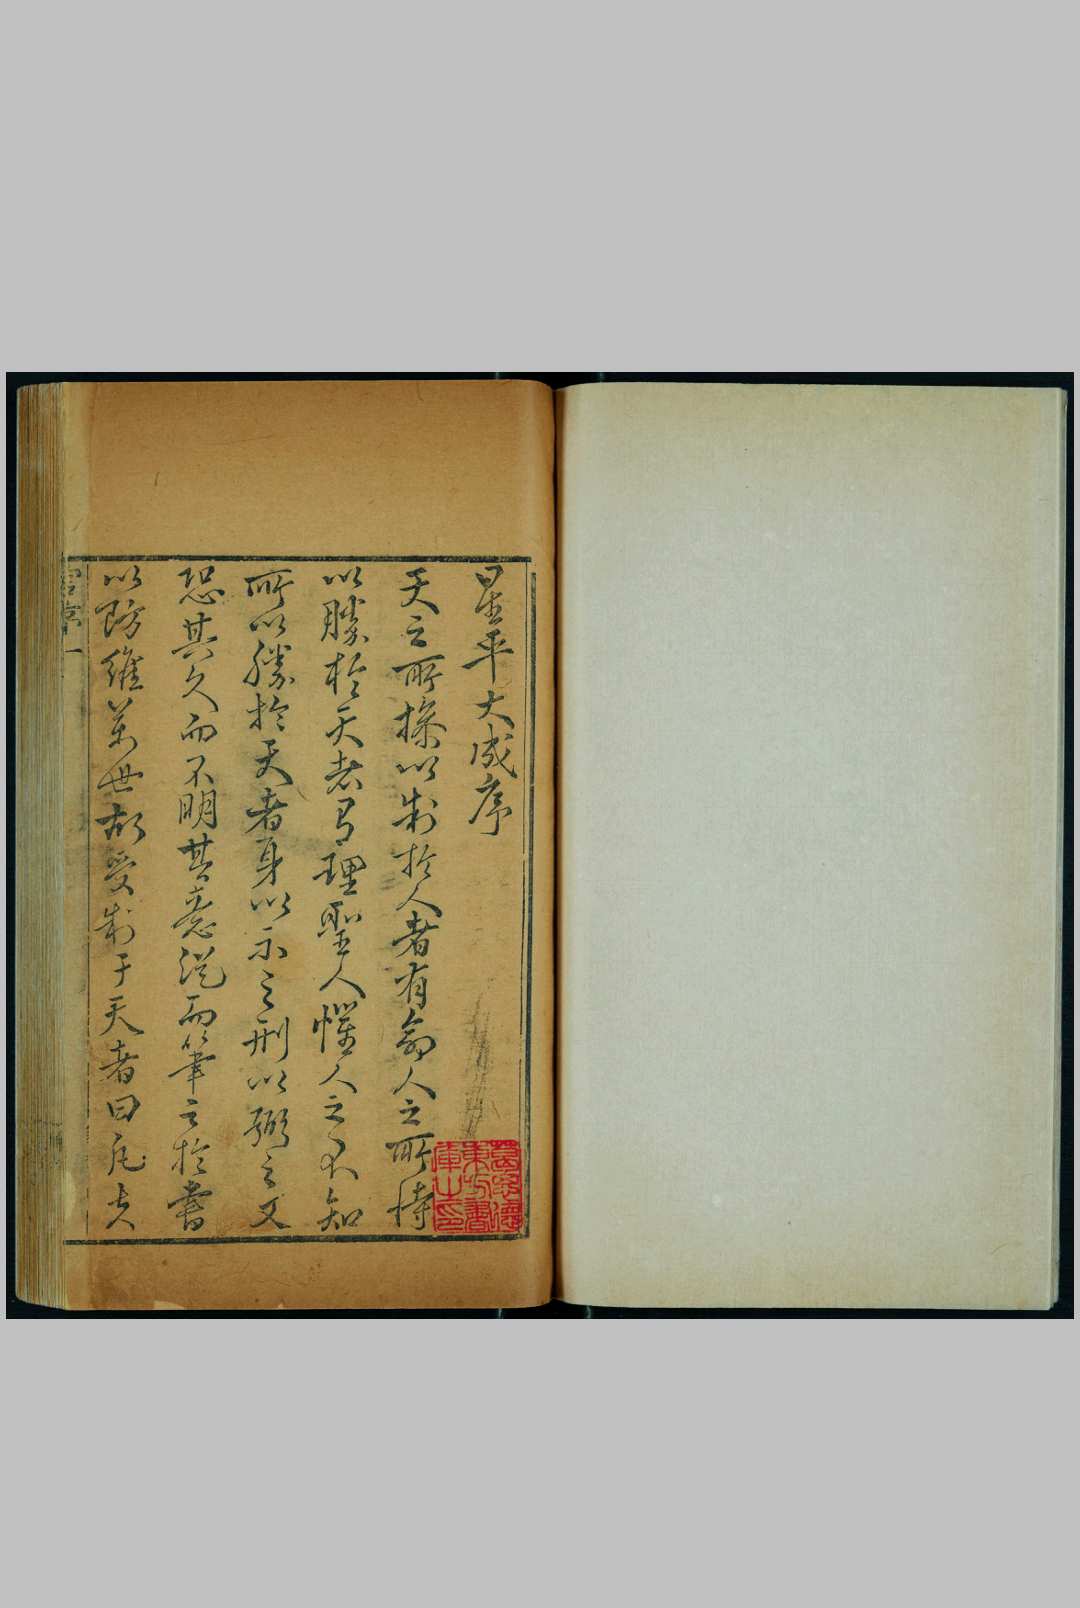 星平大成序
天之所操以制於人者有命人之所恃
以勝於天者有理聖人懼人之不知
所以勝於天者身以示之刑以弼之又
恐其久而不明其意説而筆之於書
以防維萬世故受制于天者曰凡夫
官序 一
葛思德
東方書
庫之印